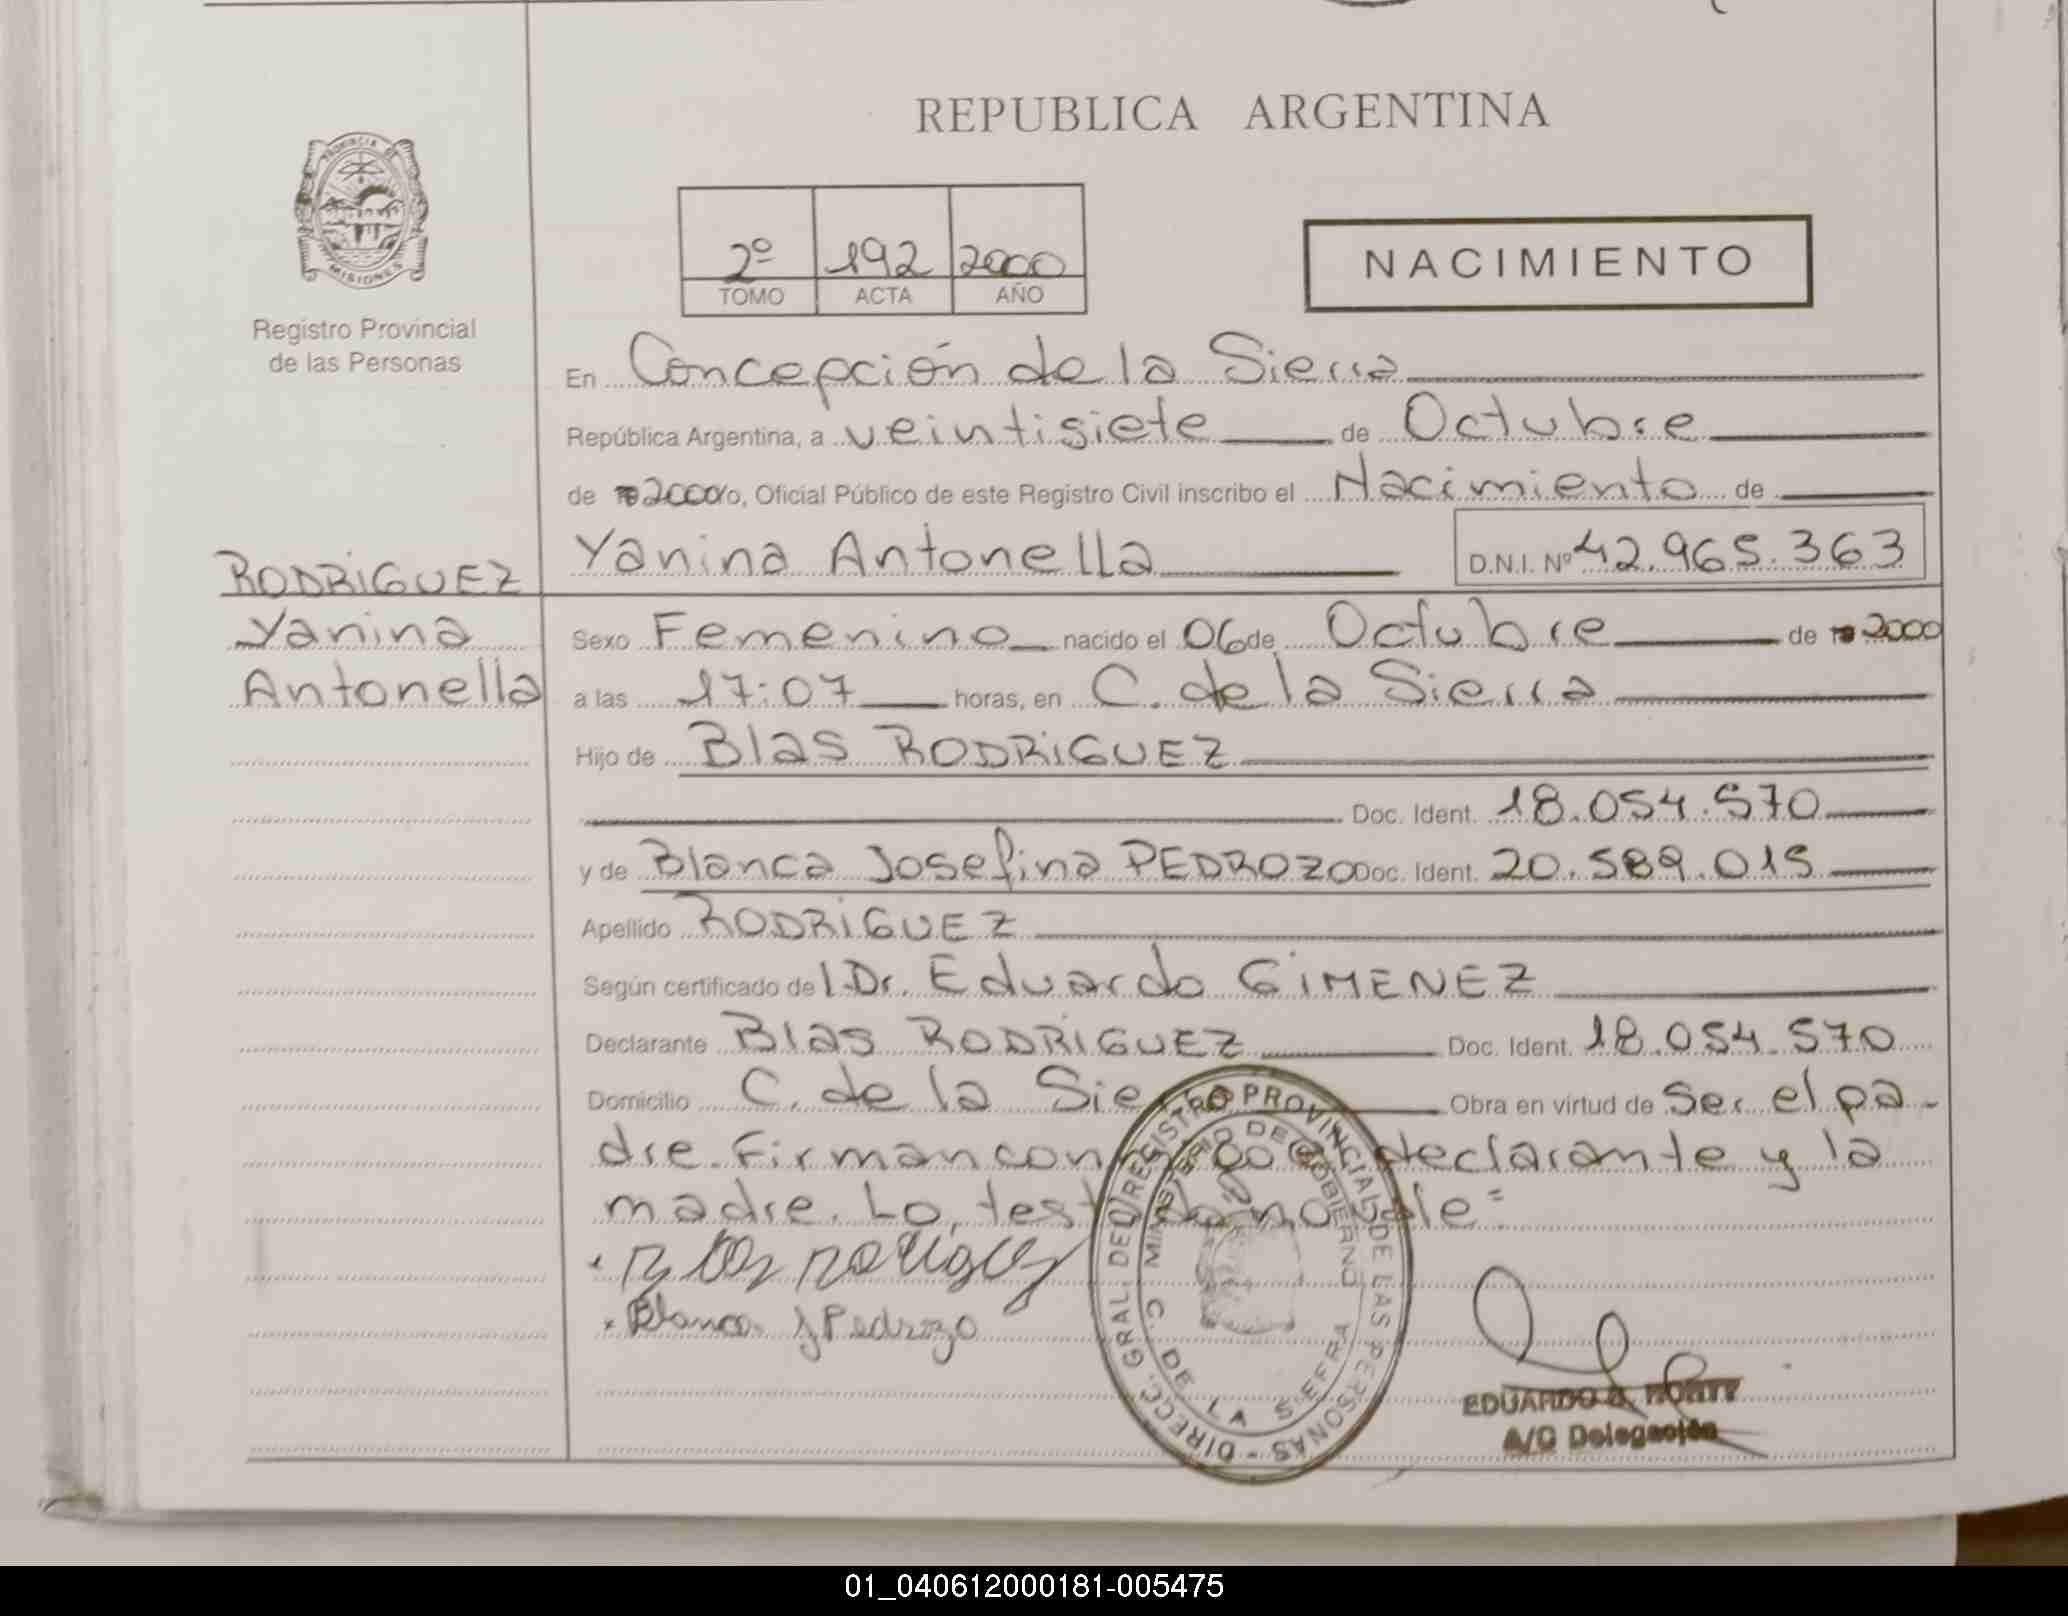 REPUBLICA ARGENTINA
PROVINCIA DE
MISIONES
Registro Provincial
de las Personas
2º 192 2000
TOMO ACTA AÑO
NACIMIENTO
En Concepción de la Sierra
República Argentina, a veintisiete de Octubre
de 2000 yo, Oficial Público de este Registro Civil inscribo el Nacimiento de
Yanina Antonella D.N.I. Nº 42.965.363
RODRIGUEZ
Yanina
Antonella
Sexo Femenino nacido el 06 de Octubre de 2000
a las 17:07 horas, en C. de la Sierra
Hijo de Blas RODRIGUEZ
Doc. Ident. 18.054.570
y de Blanca Josefina PEDROZO Doc. Ident. 20.589.015
Apellido RODRIGUEZ
Según certificado del Dr. Eduardo GIMENEZ
Declarante Blas RODRIGUEZ Doc. Ident. 18.054.570
Domicilio C. de la Sie Obra en virtud de Ser el pa-
dre. Firman con declarante y la
madre. Lo, test no vale=
Blanca J Pedrozo
DIRECC. GRAL. DEL REGISTRO PROVINCIAL DE LAS PERSONAS -
MINISTERIO DE GOBIERNO
C. DE LA SIERRA
EDUARDO
A/C Delegación
01_040612000181-005475